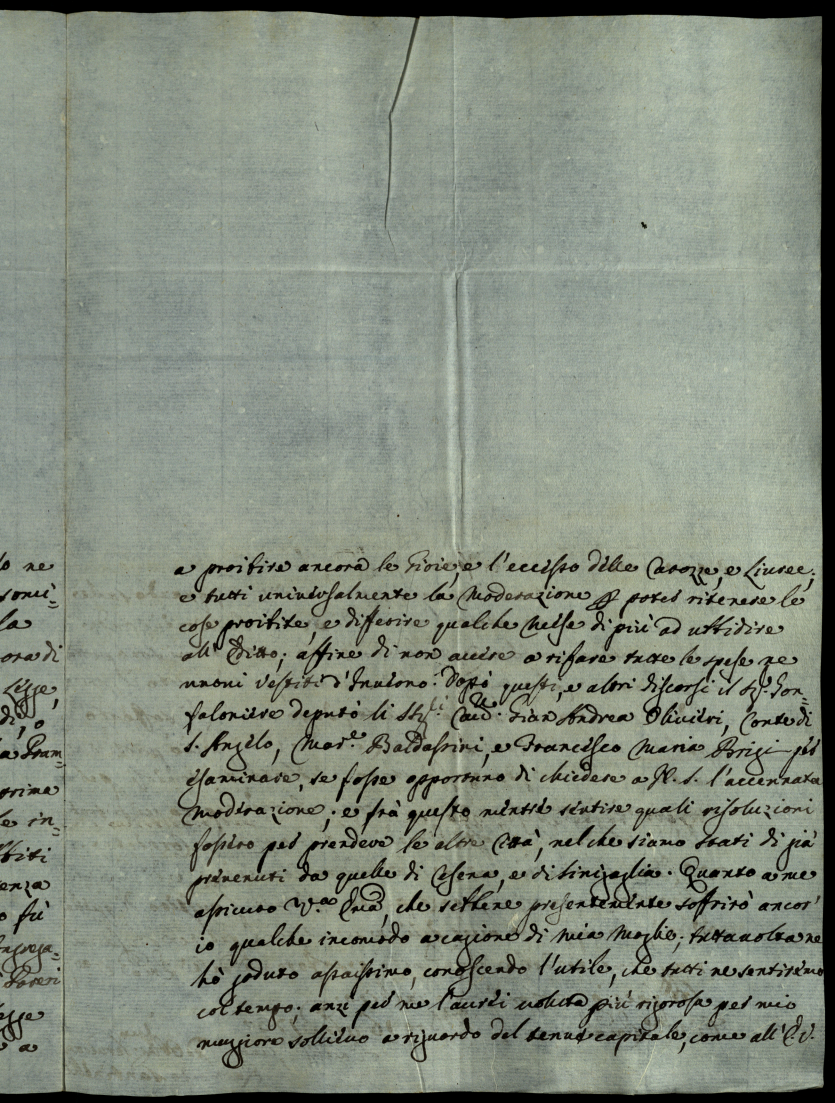 lo ne
la
ora di
Legge,
di, o
a Pram-
prima
le in-
biti
enza
o fù
Pareri
egge
e a
a proibire ancora le Gioie, e l'eccesso delle Carozze, e Livree;
e tutti universalmente la moderazione p poter ritenere le
cose proibite, e differire qualche mese di più ad ubbidire
all' Editto; affine di non avere a rifare tutte le spese ne
nuovi vestiti d'Inverno. Doppo questi, e altri discorsi il Sig.r Gon-
faloniere deputò li SSig.ri Cav.e Gian Andrea Olivieri, Conte di
S. Angelo, Mar.e Baldassini, e Francesco Maria per
esaminare, se fosse opportuno di chiedere a N. S. l'accennata
moderazione; e frà questo mentre sentire quali risoluzioni
fossero per prendere le altre Città, nel che siamo stati di già
prevenuti da quelle di Cesena, e di Sinigaglia. Quanto a me
assicuro V.ra Em.a, che sebbene presentemente soffrirò ancor'
io qualche incomodo a cagione di mia Moglie; tuttavolta ne
hò goduto assaissimo, conoscendo l'utile, che tutti ne sentiremo
col tempo; anzi per me l'avrei voluta più rigorosa per mio
maggiore sollievo a riguardo del tenue capitale, come all' E. V.